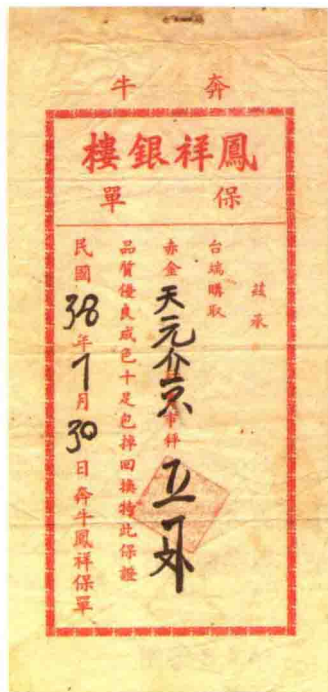 奔牛
鳳祥銀樓
保單
茲承
台端購取
赤金天元 市秤
品質優良成色十足包掉回換特此保證
民國38年7月30日奔牛鳳祥保單